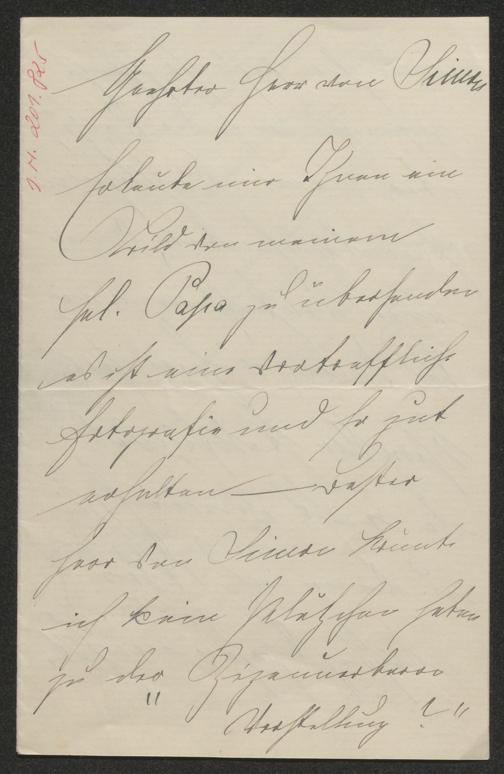 J.N. 201.825
Geehrter Herr von Simon
Erlaube mir Ihnen ein
Bild von meinem
sel. Papa zu übersenden
es ist eine vortreffliche
Fotografie und so gut
erhalten — Bester
Herr von Simon könnte
ich kein Plätzchen haben
zu der Zigeunerbaron
" Vorstellung ? "